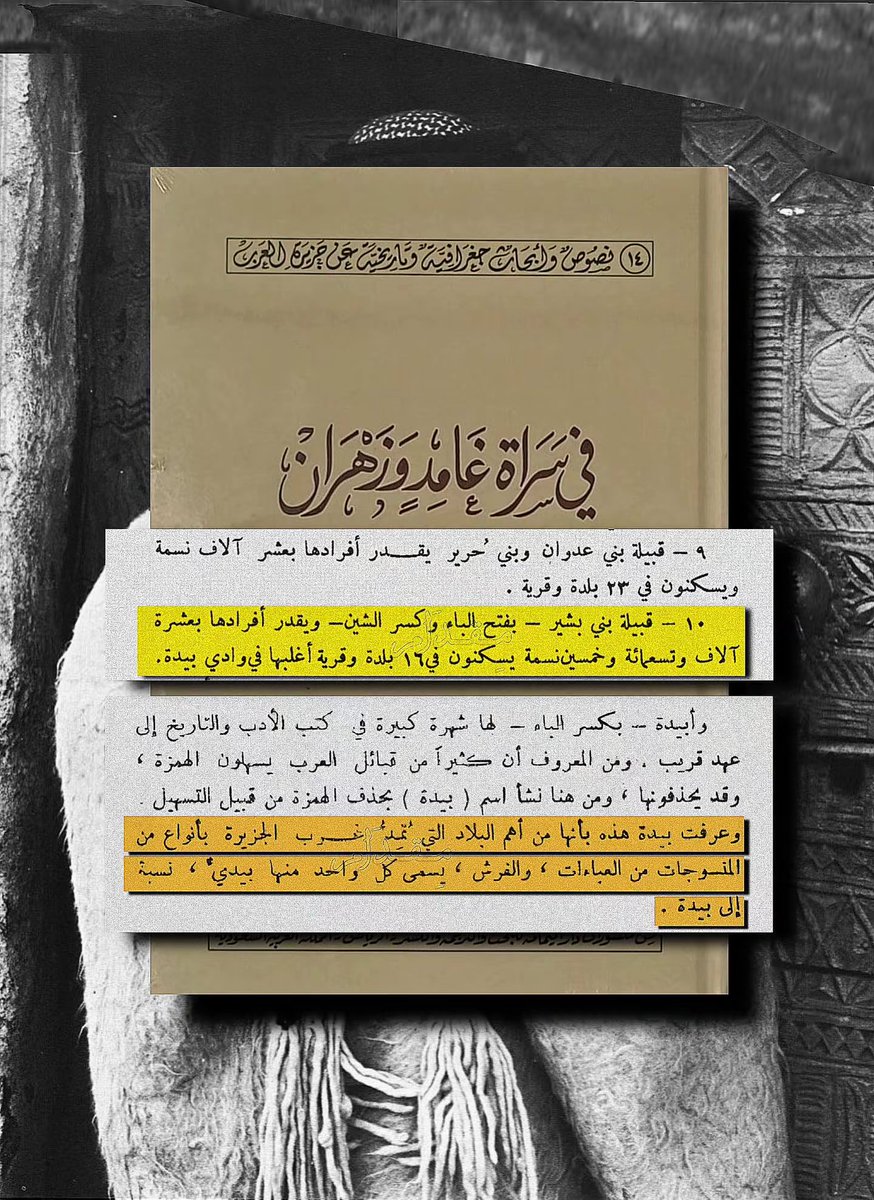 ١٤ نصوص وأبحاث جغرافية وتاريخية عن جزيرة العرب
في سراة غامد وزهران
٩ – قبيلة بني عدوان وبني حُرير يقــدر أفرادها بعشر آلاف نسمة
ويسكنون في ٢٣ بلدة وقرية .
١٠ – قبيلة بني بشير – بفتح الباء وكسر الشين – ويقدر أفرادها بعشرة
آلاف وتسعمائة وخمسين نسمة يسكنون في ١٦ بلدة وقرية أغلبها في وادي بيدة.
وأبيدة – بكسر الباء – لها شهرة كبيرة في كتب الأدب والتاريخ إلى
عهد قريب . ومن المعروف أن كثيراً من قبائل العرب يسهلون الهمزة ،
وقد يحذفونها ، ومن هنا نشأ اسم ( بيدة ) بحذف الهمزة من قبيل التسهيل .
وعرفت بيدة هذه بأنها من أهم البلاد التي تُمِدُّ غــرب الجزيرة بأنواع من
المنسوجات من العباءات ، والفرش ، يسمى كل واحد منها بيديٌ ، نسبة
إلى بيدة .